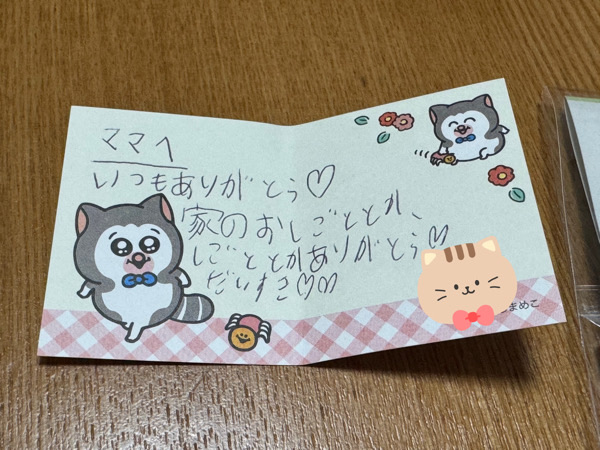 ママへ
いつもありがとう♡
家のおしごととか、
しごととかありがとう♡
だいすき♡♡
まめこ